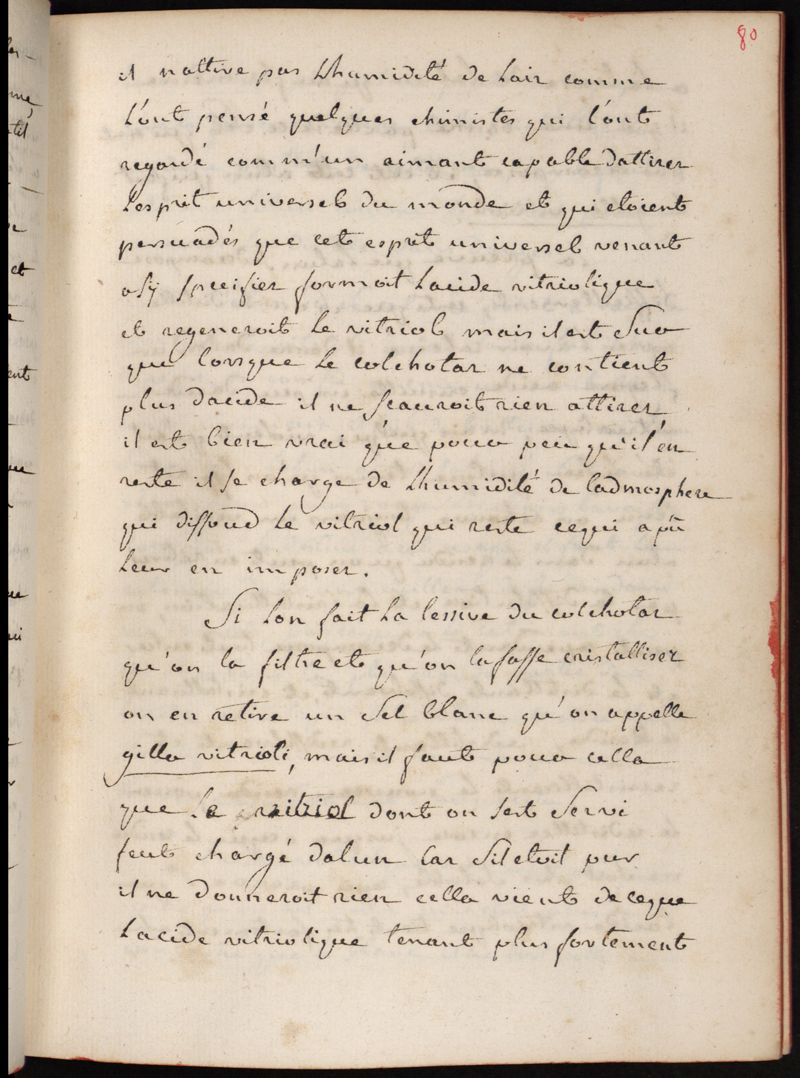 80
il n'attire pas Lhumidité de Lair comme
L'ont pensé quelques chimistes qui l'ont
regardé comm'un aimant capable d'attirer
Lesprit universel du monde et qui etoient
persuadés que cet esprit universel venant
a sÿ specifier formoit Lacide vitriolique
et regeneroit Le vitriol mais il est Sur
que lorsque Le colchotar ne contient
plus dacide il ne scauroit rien attirer
il est bien vrai que pour peu qu'il en
reste il se charge de Lhumidité de Ladmosphere
qui dissoud Le vitriol qui reste cequi a pû
Leur en imposer.
Si Lon fait La lessive du colchotar
qu'on la filtre et qu'on la fasse cristalliser
on en retire un Sel blanc qu'on appelle
gilla vitrioli, mais il faut pour cella
que Le vitriol dont on sest Servi
feut chargé dalun Car Sil etoit pur
il ne Donneroit rien cella vient de ceque
Lacide vitriolique tenant plus fortement